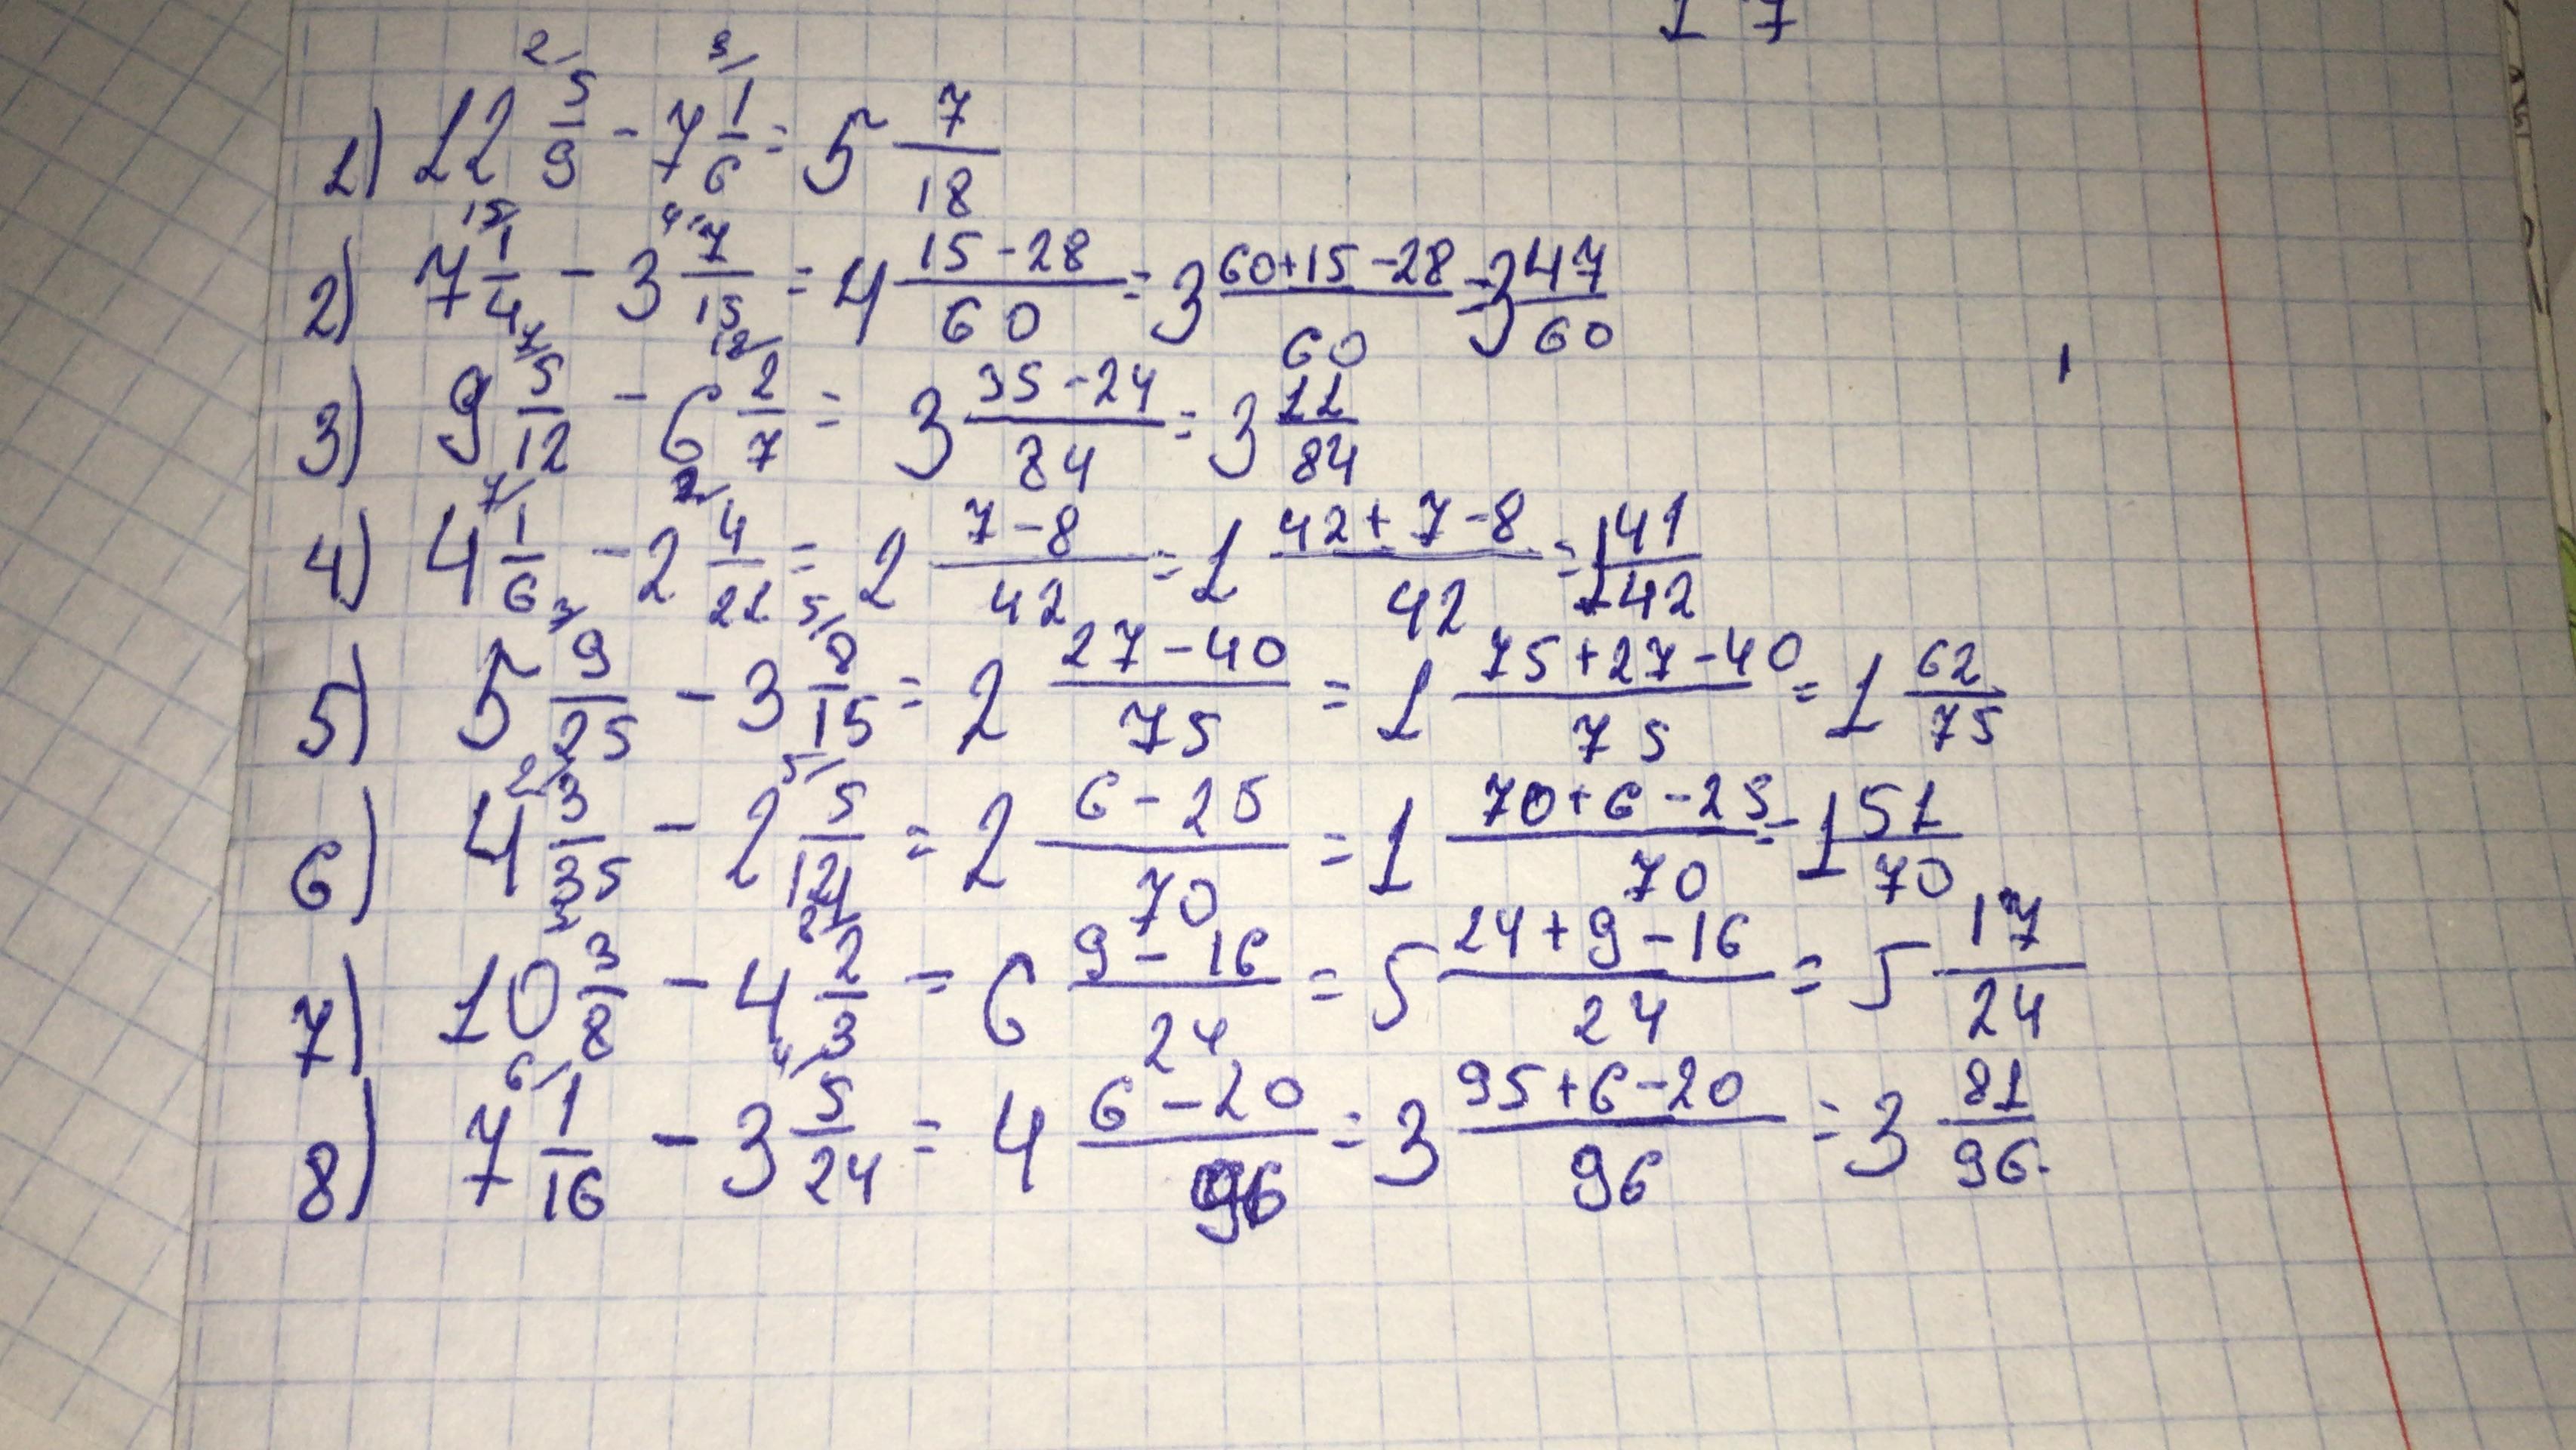 17
1) 12 2/ 5/9 - 7 3/ 1/6 = 5 7/18
2) 7 15/ 1/4 - 3 4/ 7/15 = 4 15-28/60 = 3 60+15-28/60 = 3 47/60
3) 9 7/ 5/12 - 6 12/ 2/7 = 3 35-24/84 = 3 11/84
4) 4 7/ 1/6 - 2 2/ 4/21 = 2 7-8/42 = 1 42+7-8/42 = 1 41/42
5) 5 3/ 9/25 - 3 5/ 8/15 = 2 27-40/75 = 1 75+27-40/75 = 1 62/75
6) 4 2/ 3/35 - 2 5/ 5/14 = 2 6-25/70 = 1 70+6-25/70 = 1 51/70
7) 10 3/ 3/8 - 4 8/ 2/3 = 6 9-16/24 = 5 24+9-16/24 = 5 17/24
8) 7 6/ 1/16 - 3 4/ 5/24 = 4 6-20/96 = 3 95+6-20/96 = 3 81/96